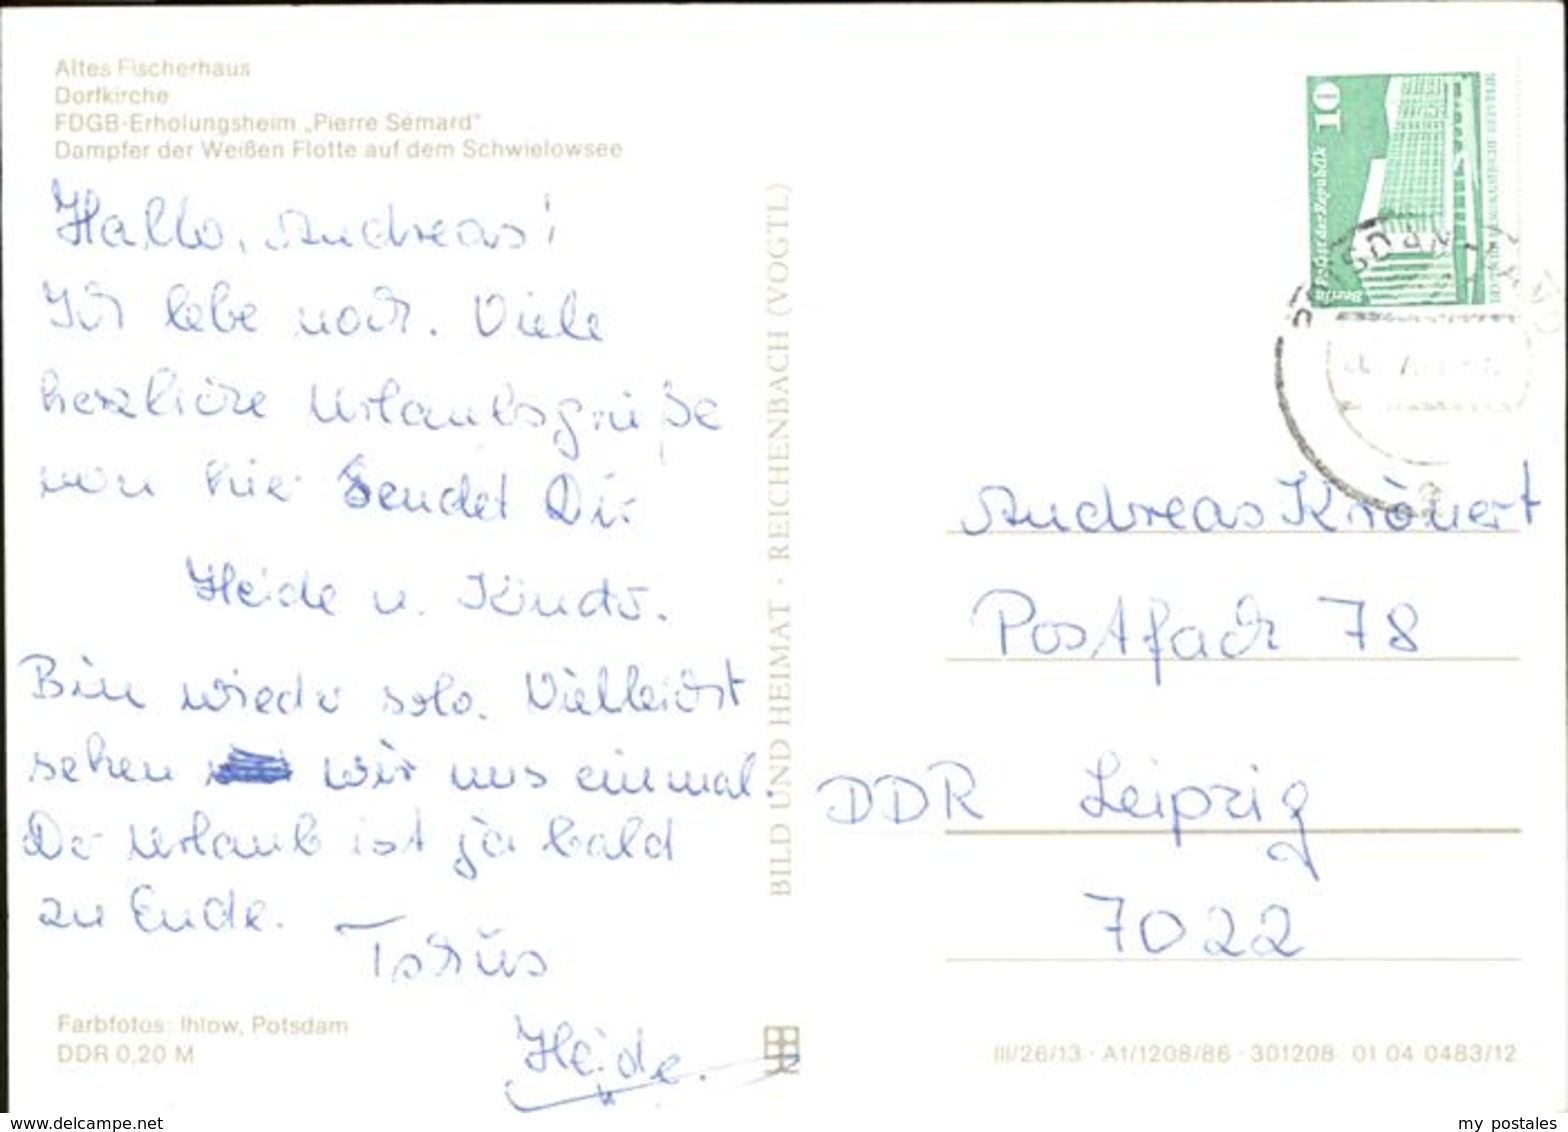 Altes Fischerhaus
Dorfkirche
FDGB-Erholungsheim „Pierre Sémard"
Dampfer der Weißen Flotte auf dem Schwielowsee
Hallo, Andreas!
Ich lebe noch. Viele
herzliche Urlaubsgrüße
von hier sendet Dir
Heide u.
Bin wieder solo. Vielleicht
sehen wir uns einmal.
Der Urlaub ist ja bald
zu Ende.
Tschüs
Heide.
Farbfotos: Ihlow, Potsdam
DDR 0,20 M
BILD UND HEIMAT · REICHENBACH (VOGTL)
10
Berlin Palast der Republik
Andreas Krönert
Postfach 78
DDR Leipzig
7022
III/26/13 · A1/1208/86 · 301208 01 04 0483/12
www.delcampe.net
my postales